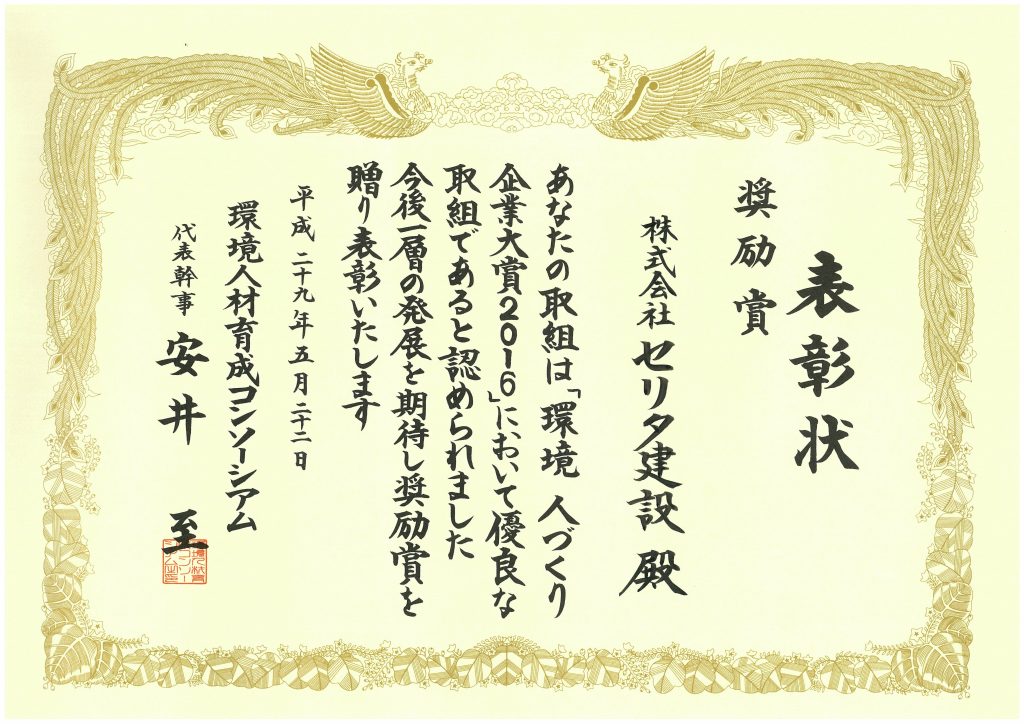 表彰状
奨励賞
株式会社 セリタ建設 殿
あなたの取組は「環境 人づくり
企業大賞2016」において優良な
取組であると認められました
今後一層の発展を期待し奨励賞を
贈り表彰いたします
平成 二十九年 五月 二十二日
環境人材育成コンソーシアム
代表幹事 安井 至